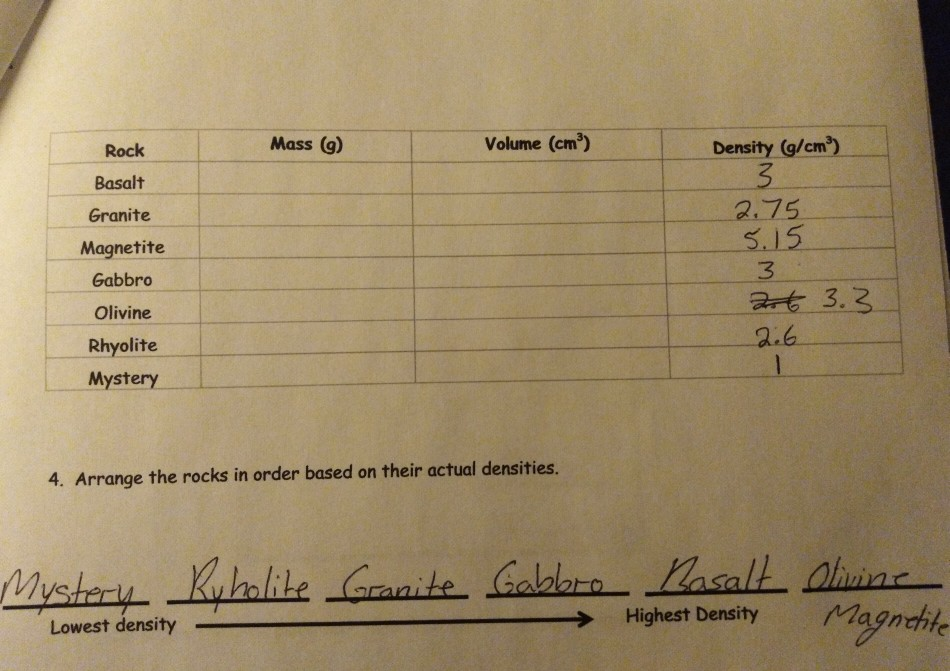 Rock Mass (g) Volume (cm³) Density (g/cm³)
Basalt 3
Granite 2.75
Magnetite 5.15
Gabbro 3
Olivine 2.6 3.3
Rhyolite 2.6
Mystery 1
4. Arrange the rocks in order based on their actual densities.
Mystery Ryholite Granite Gabbro Basalt Olivine
Lowest density Highest Density Magnetite